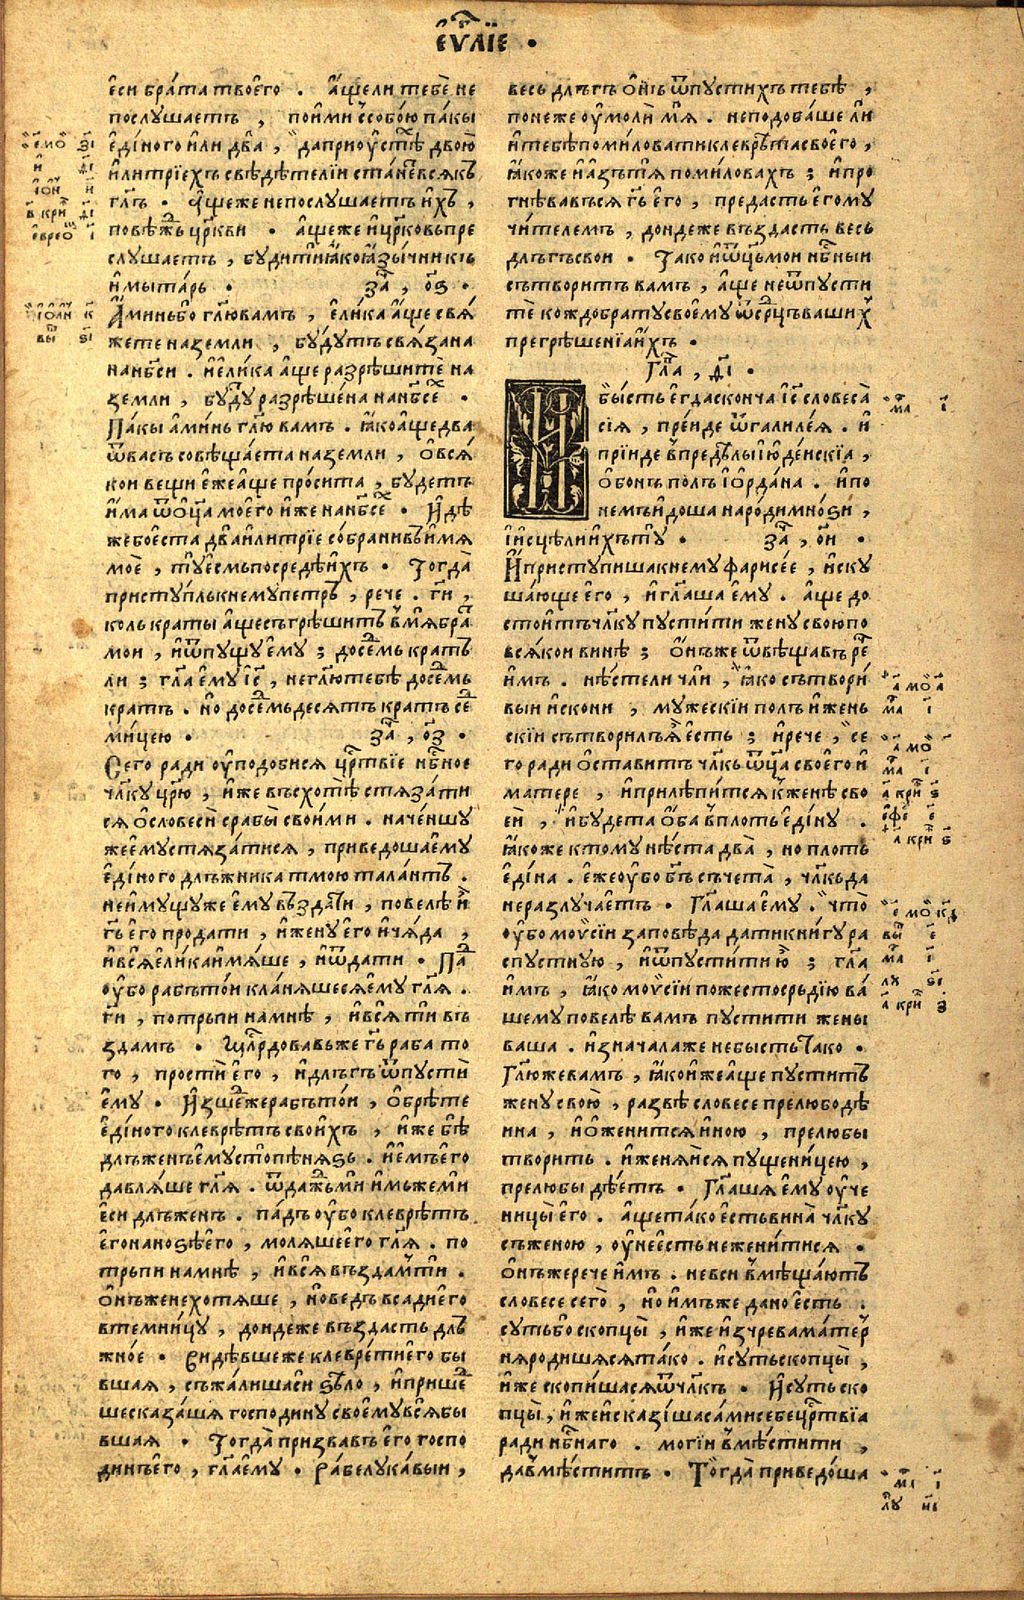 еѵⷢ҇лїе .
еси брата твоего . аще ли тебе не
послушаетъ , поими ссобою пакы
единого или два , да при оустѣⷯ двою
или трїехъ свѣдѣтелїи станеⷮ всякъ
гл҃ъ . аще же непослушаетъ ихъ ,
повѣжⷣь цр҃кви . аще же и цр҃ковь пре
слушаетъ , буди ти ꙗко ꙗзычникъ
и мытарь . заⷱ҇ , о҃ѕ .
Аминь бо гл҃ю вамъ , елика аще свя
жете на земли , будутъ связана
на нб҃си . и елика аще разрѣшите на
земли , будуⷮ разрѣшена на нб҃сеⷯ .
Пакы аминь гл҃ю вамъ . ꙗко аще два
ѿ васъ совѣщаета на земли , о вся
кои вещи еже аще просита , будетъ
има ѿ оц҃а моего иже на нб҃сеⷯ . Идѣ
же бо еста два или трїе собрани въ имя
мое , ту есмь посредѣ ихъ . Тогда
приступль к нему петръ , рече . ги҃ ,
коль краты аще съгрѣшитъ в мя браⷮ
мои , и ѿпущу ему ; до сеⷣмь кратъ
ли ; гл҃а ему іс҃ , не гл҃ю тебѣ до сеⷣмь
кратъ . но до сеⷣмьдесятъ кратъ сеⷣ
мицею . заⷱ҇ , о҃з .
Сего ради оуподобися црⷭ҇твїе нбⷭ҇ное
чл҃ку цр҃ю , иже въсхотѣ стязати
ся о словеси с рабы своими . наченшу
же ему стязатися , приведоша ему
единого длъжника тмою талантъ .
не имущу же ему въздати , повелѣ и
гь҃ его продати , и жену его и чяда ,
и вся елика имяше , и ѿдати . Паⷣ
оубо рабъ тои кланяшеся ему гл҃я .
ги҃ , потрьпи на мнѣ , и вся ти въ
здамъ . Млⷭ҇рдовавъ же гь҃ раба то
го , прости его , и длъгъ ѿпусти
ему . Изшеⷣ же рабъ тои , обрѣте
единого клеврѣтъ своихъ , иже бѣ
длъженъ ему стопѣнязь . и емъ его
давляше гл҃я . ѿдажⷣь ми имьже ми
еси длъженъ . падъ оубо клеврѣтъ
его на нозѣ его , моляше его гл҃я . по
трьпи на мнѣ , и вся въздам ти .
Онъ же не хотяше , но ведъ всади его
в темницу , дондеже въздасть длъ
жное . Видѣвше же клеврети его бы
вшая , съжалиша си ѕѣло , и пришеⷣ
ше сказашя господину своему вся бы
вшая . Тогда призвавъ его госпо
динъ его , гл҃а ему . Рабе лукавыи ,
весь длъгъ онъ ѿпустихъ тебѣ ,
понеже оумоли мя . не подобаше ли
и тебѣ помиловати клеврѣта своего ,
ꙗкоже и азъ тя помиловахъ ; и про
гнѣвавъся гь҃ его , предасть его му
чителемъ , дондеже въздасть весь
длъгъ свои . Тако и ѿц҃ь мои нбⷭ҇ныи
сътворитъ вамъ , аще не ѿпусти
те кождо брату своему ѿ срⷣць вашиⷯ
прегрѣшенїа ихъ .
Глаⷡ , ді҃ .
И бысть егда сконча іс҃ словеса
сїя , преиде ѿ галилея . и
прїиде в предѣлы іюденскїа ,
об онъ полъ іордана . и по
немъ идоша народи мноѕи ,
и исцѣли ихъ ту . заⷱ҇ , ои҃ .
И приступиша к нему фарисее , иску
шающе его , и гл҃аша ему . аще до
стоитъ чл҃ку пустити жену свою по
всякои винѣ ; Онъ же ѿвѣщавъ реⷱ҇
имъ . нѣсте ли чли , ꙗко сътвори
выи искони , мужескїи полъ и жень
скїи сътворилъ я есть ; и рече , се
го ради оставитъ чл҃къ ѿц҃а своего и
матере , и прилѣпится к женѣ сво
еи , и будета оба в плоть едину .
ꙗкоже ктому нѣста два , но плоть
едина . еже оубо бг҃ъ съчета , чл҃къ да
не разлучаетъ . Гл҃аша ему . что
оубо моѵсїи заповѣда дати книгу ра
спустную , и ѿпустити ю ; гл҃а
имъ , ꙗко моѵсїи по жестосрьдїю ва
шему повелѣ вамъ пустити жены
ваша . изначала же не бысть тако .
Гл҃ю же вамъ , ꙗко иже аще пуститъ
жену свою , развѣ словесе прелюбодѣ
ина , и оженится иною , прелюбы
творитъ . и женяися пущеницею ,
прелюбы дѣетъ . Гл҃ашя ему оуче
ницы его . аще тако есть вина чл҃ку
съ женою , оунее есть не женитися .
Онъ же рече имъ . не вси вмѣщаютъ
словесе сего , но имъже дано есть .
суть бо скопцы , иже из чрева матеⷬ҇
ня родишяся тако . и суть скопцы ,
иже скопишася ѿ чл҃къ . И суть ско
пцы , иже исказиша сами себе црⷭ҇твїа
ради нбⷭ҇наго . могїи вмѣстити ,
да вмѣститъ . Тогда приведоша